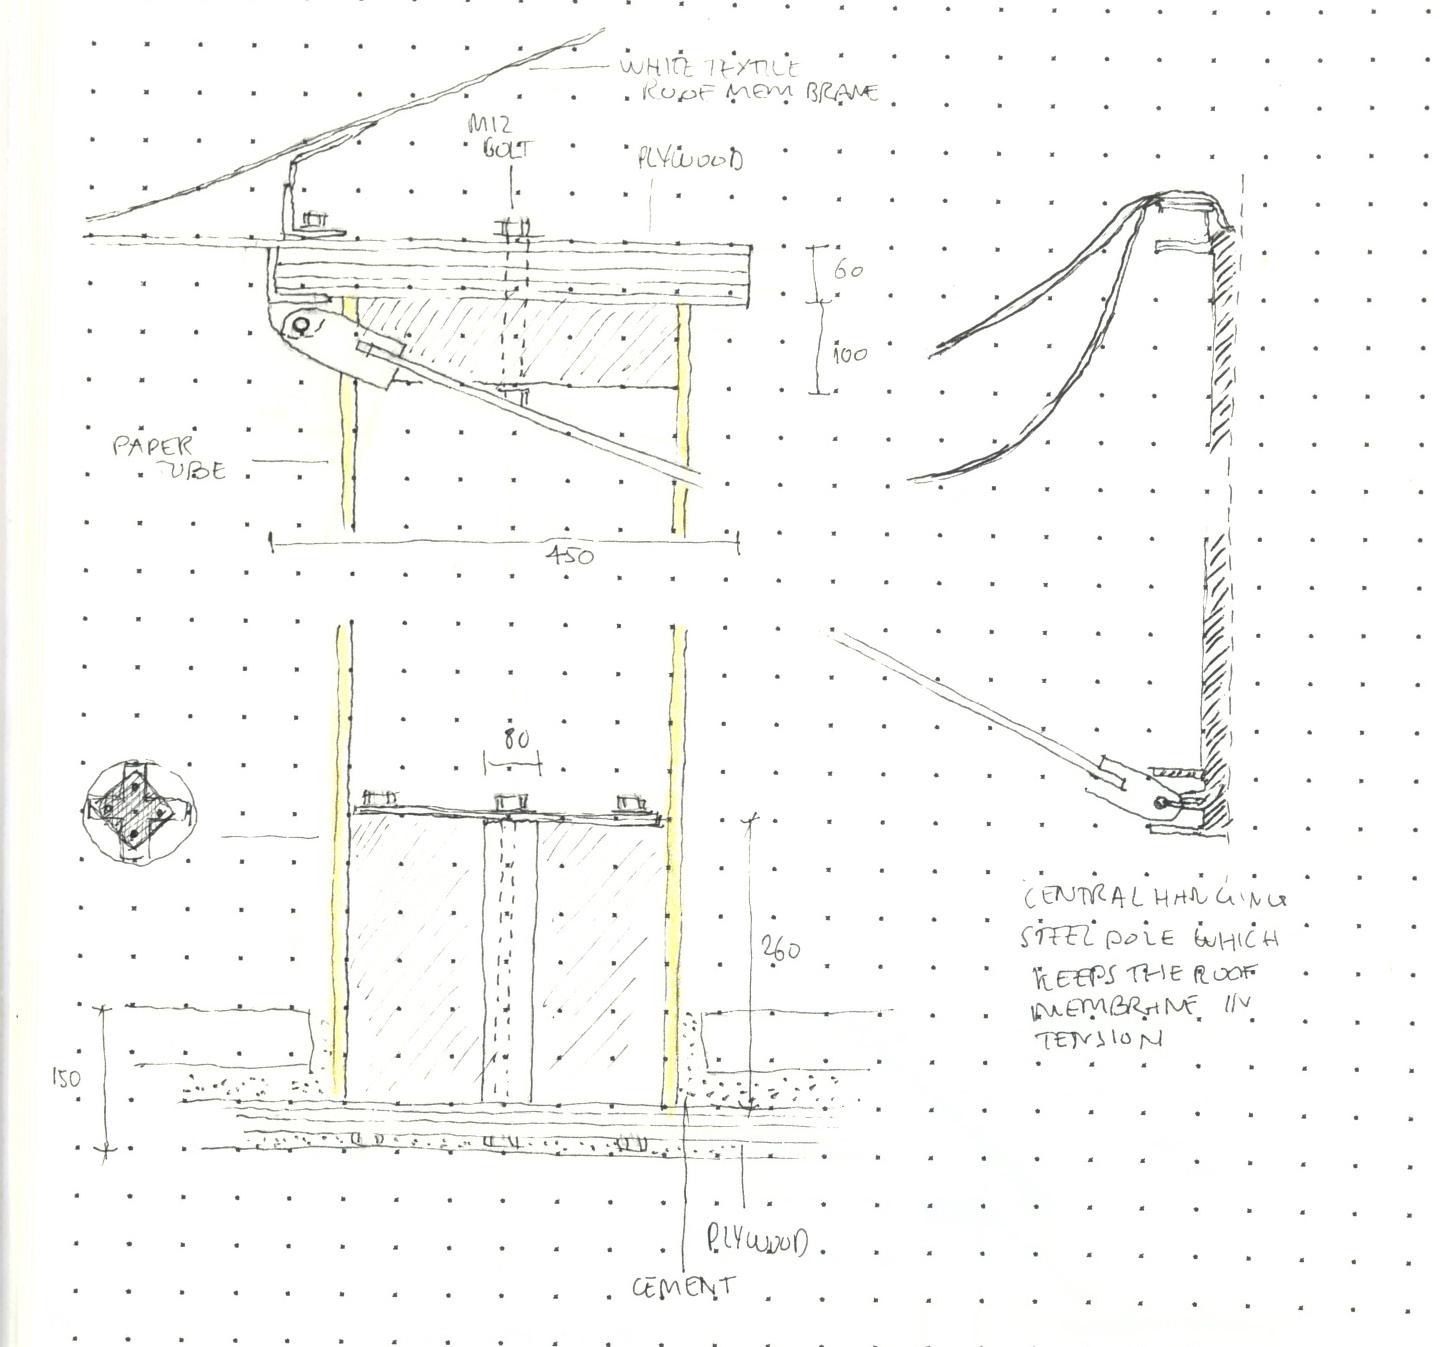 WHITE TEXTILE
ROOF MEMBRANE
M12
BOLT
PLYWOOD
60
100
PAPER
TUBE
450
80
260
150
CENTRAL HANGING
STEEL POLE WHICH
KEEPS THE ROOF
MEMBRANE IN
TENSION
PLYWOOD
CEMENT